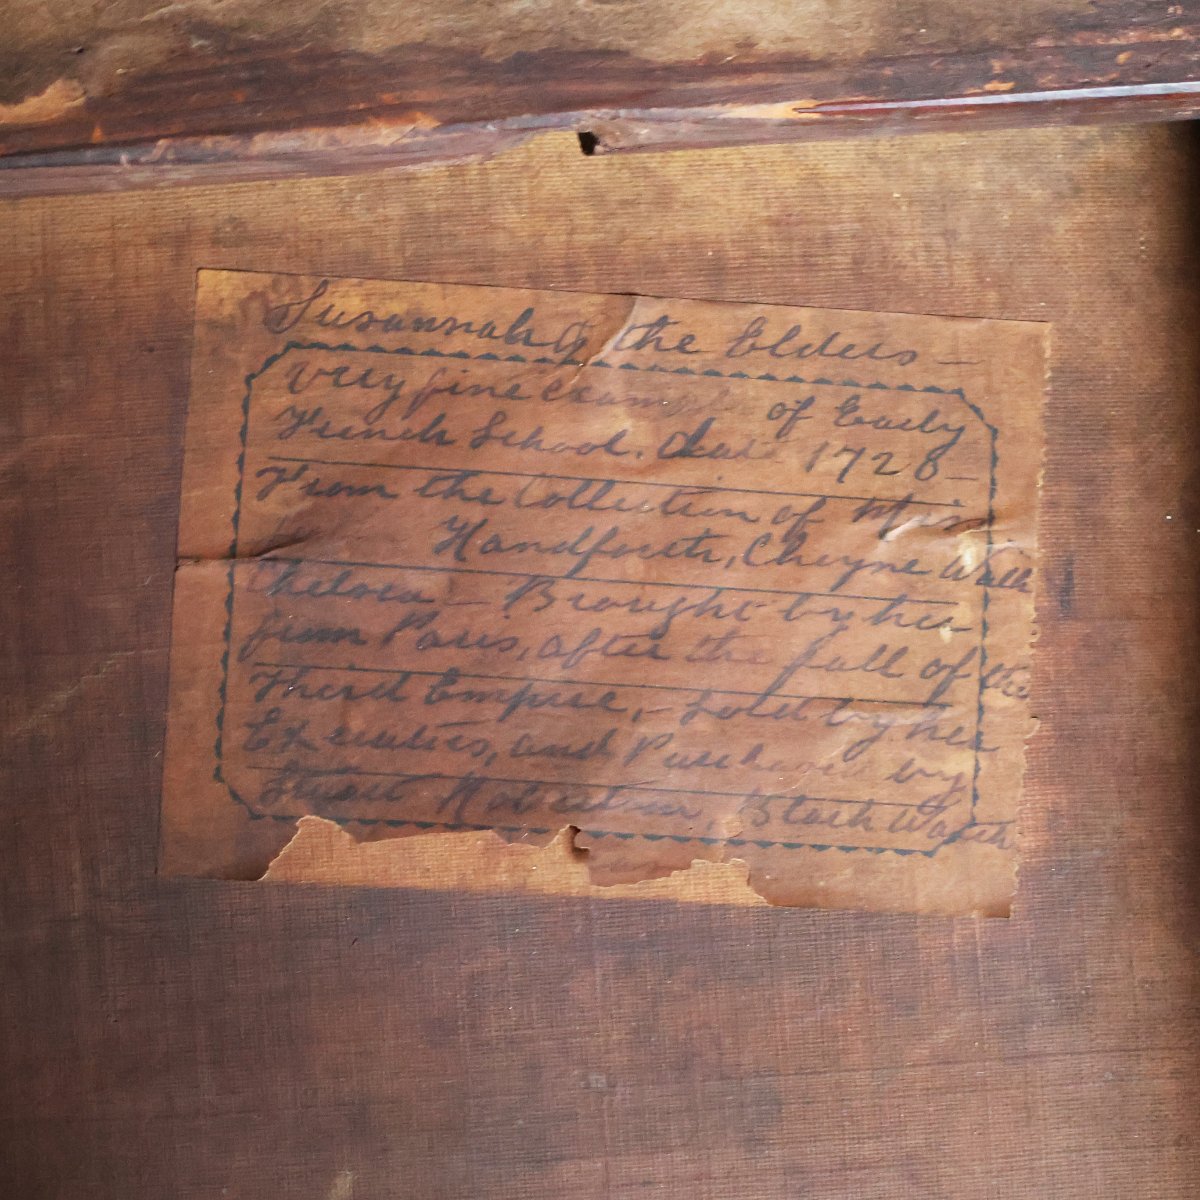 Susannah & the Elders —
Very fine example of Early
French School. date 1728 —
From the Collection of
Handforth, Cheyne Walk
Chelsea — Brought by her
from Paris, after the fall of the
Third Empire, — Sold by her
Executors, and Purchased by
Stuart Robertson, Black Watch